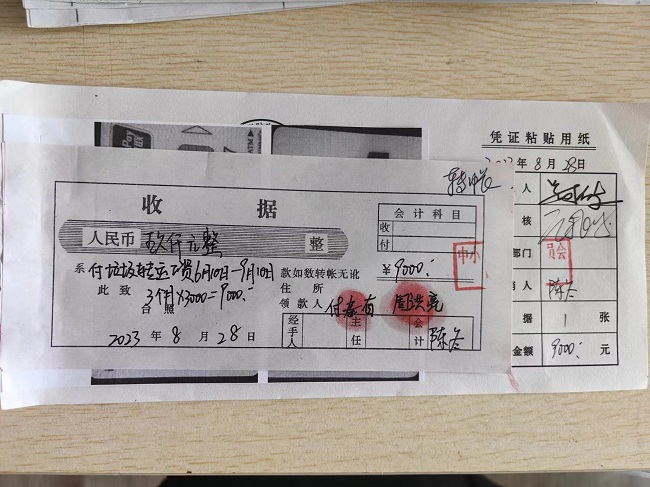 凭证粘贴用纸
2023年8月28日
收据
会计科目
收
付
人民币 玖仟元整 整
¥9000:
系付垃圾转运工资6月10日-9月10日 款如数转帐无讹
此致 3个月×3000=9000: 住所
台照 领款人 付春有 周洪亮
2023年8月28日
经手人 主任 会计 陈冬
人
核
部门
员会
人 陈冬
据 1 张
金额 9000: 元